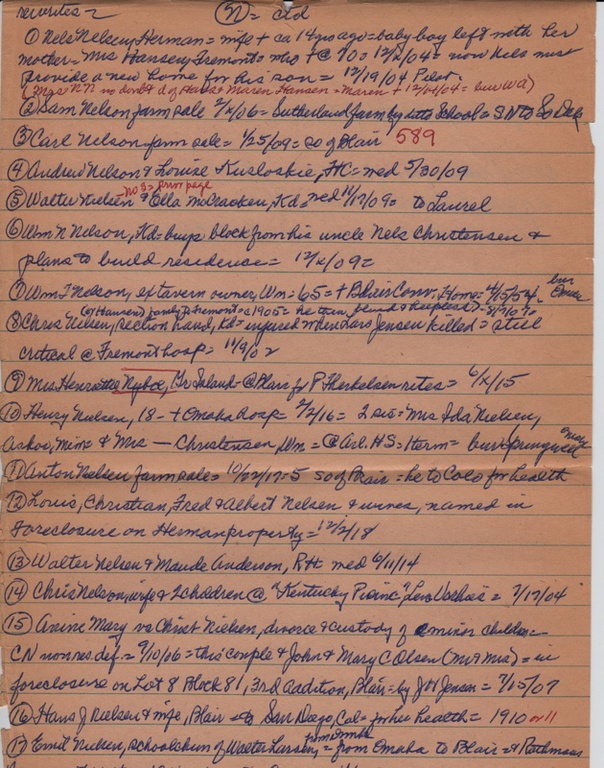 rewrites = (N) = ctd
① Nels Nelsen, Herman = wife + ca 14 yrs ago = baby boy left with her
mother = Mrs Hansen, Fremont = who + @ 70 = 12/x/04 = now Nels must
provide a new home for his son = 12/19/04 Pilot.
(Mrs NN is no doubt d of Hans & Maren Hansen = Maren + 12/04/04 = bur Wa)
② Sam Nelson farm sale 2/x/06 = Sutherland farm by School = SN to So Dak
③ Carl Nelson farm sale = 1/25/09 = so of Blair 589
④ Andrew Nelson & Louise Kusloskie, HC = wed 5/30/09
no 8 = prior page
⑤ Walter Nielsen & Ella McCracken, Kd = wed 11/17/09 = to Laurel
⑥ Wm N Nelson, Kd = buys block from his uncle Nels Christensen &
plans to build residence = 12/x/09 =
⑦ Wm F Nelson, ex tavern owner, Wn = 65 = + Blair Conv. Home = 4/5/54. bur
⑧ Chris Nielsen, section hand, Kd = injured when Lars Jensen killed = still
critical @ Fremont hosp = 11/9/02
⑨ Mrs Henriette Nyboe, Gr Island = @ Blair for P Therkelsen rites = 6/x/15
⑩ Henry Nielsen, 18 - + Omaha hosp = 2/2/16 = 2 sis = Mrs Ida Nielsen,
Askov, Minn & Mrs — Christensen, Wn = @ Arl. HS = 1 term = bur Spring well
⑪ Anton Nielsen farm sale = 10/22/17 = 5 so of Blair = he to Colo for health
⑫ Louis, Christian, Fred & Albert Nelsen & wives, named in
foreclosure on Herman property = 12/2/18
⑬ Walter Nelsen & Maude Anderson, RH wed 6/11/14
⑭ Chris Nelson, wife & 2 children @ "Kentucky Picnic," = 7/17/04
⑮ Mary vs Christ Nielsen, divorce & custody of minor children =
CN nonres. def. = 9/10/06 = this couple & John & Mary C Olsen (Mr & Mrs) = in
foreclosure on Lot 8 Block 81, 3rd addition, Blair = by J H Jensen = 7/15/07
⑯ Hans J Nielsen & wife, Blair to San Diego, Cal = for her health = 1910 or 11
⑰ Emil Nielsen, school chum of Walter Larsen, = from Omaha to Blair =